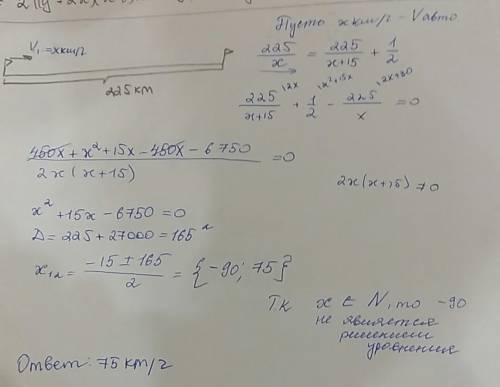 Пусть x км/г – V авто.
V₁ = x км/г
225 км
225/x = 225/(x+15) + 1/2
225/(x+15) ^(2x) + 1/2 ^(x²+15x) − 225/x ^(2x+30) = 0
(450x + x² + 15x − 450x − 6750)/(2x(x+15)) = 0
2x(x+15) ≠ 0
x² + 15x − 6750 = 0
D = 225 + 27000 = 165²
x₁,₂ = (−15 ± 165)/2 = {−90; 75}
Тк x ∈ N, то −90
не является
решением
уравнения
Ответ: 75 км/г